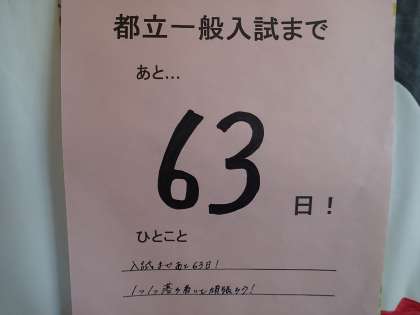 都立一般入試まで
あと…
63
日！
ひとこと
入試まであと63日！
1つ1つ落ち着いて頑張ろう！